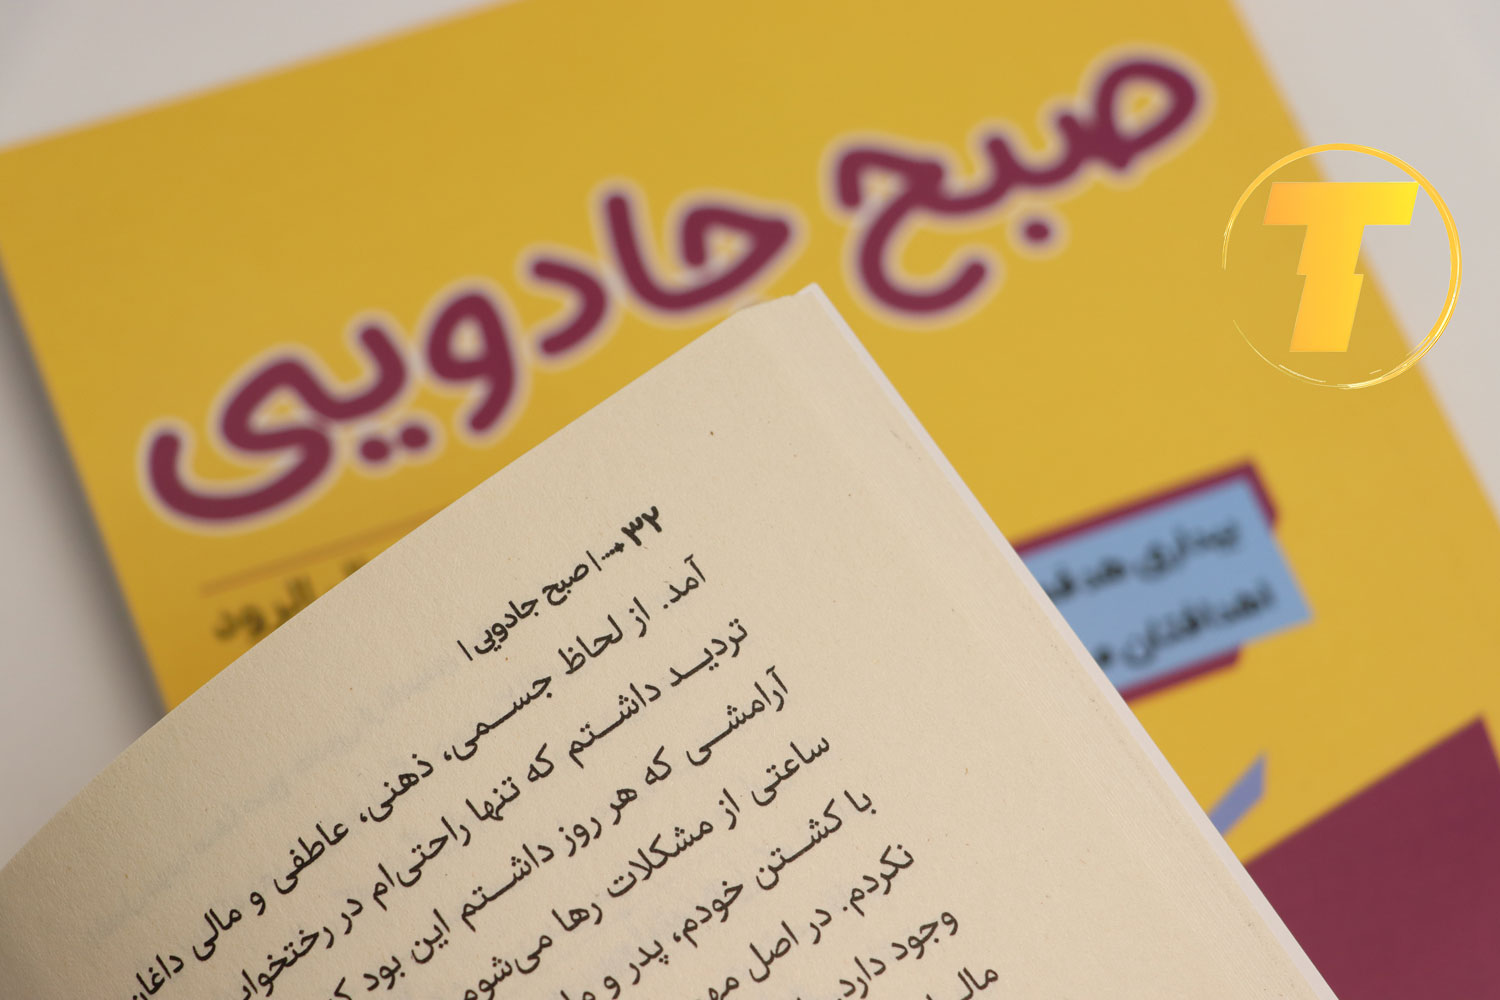 صبح جادویی
T
الرود
بیداری هدفم
اهدافتان م
۳۲ | صبح جادویی |
آمد. از لحاظ جسمی، ذهنی، عاطفی و مالی داغان
تردید داشتم که تنها راحتی‌ام در رختخواب
آرامشی که هر روز داشتم این بود که
ساعتی از مشکلات رها می‌شوم
با کشتن خودم، پدر و
نکردم. در اصل
وجود دارد.